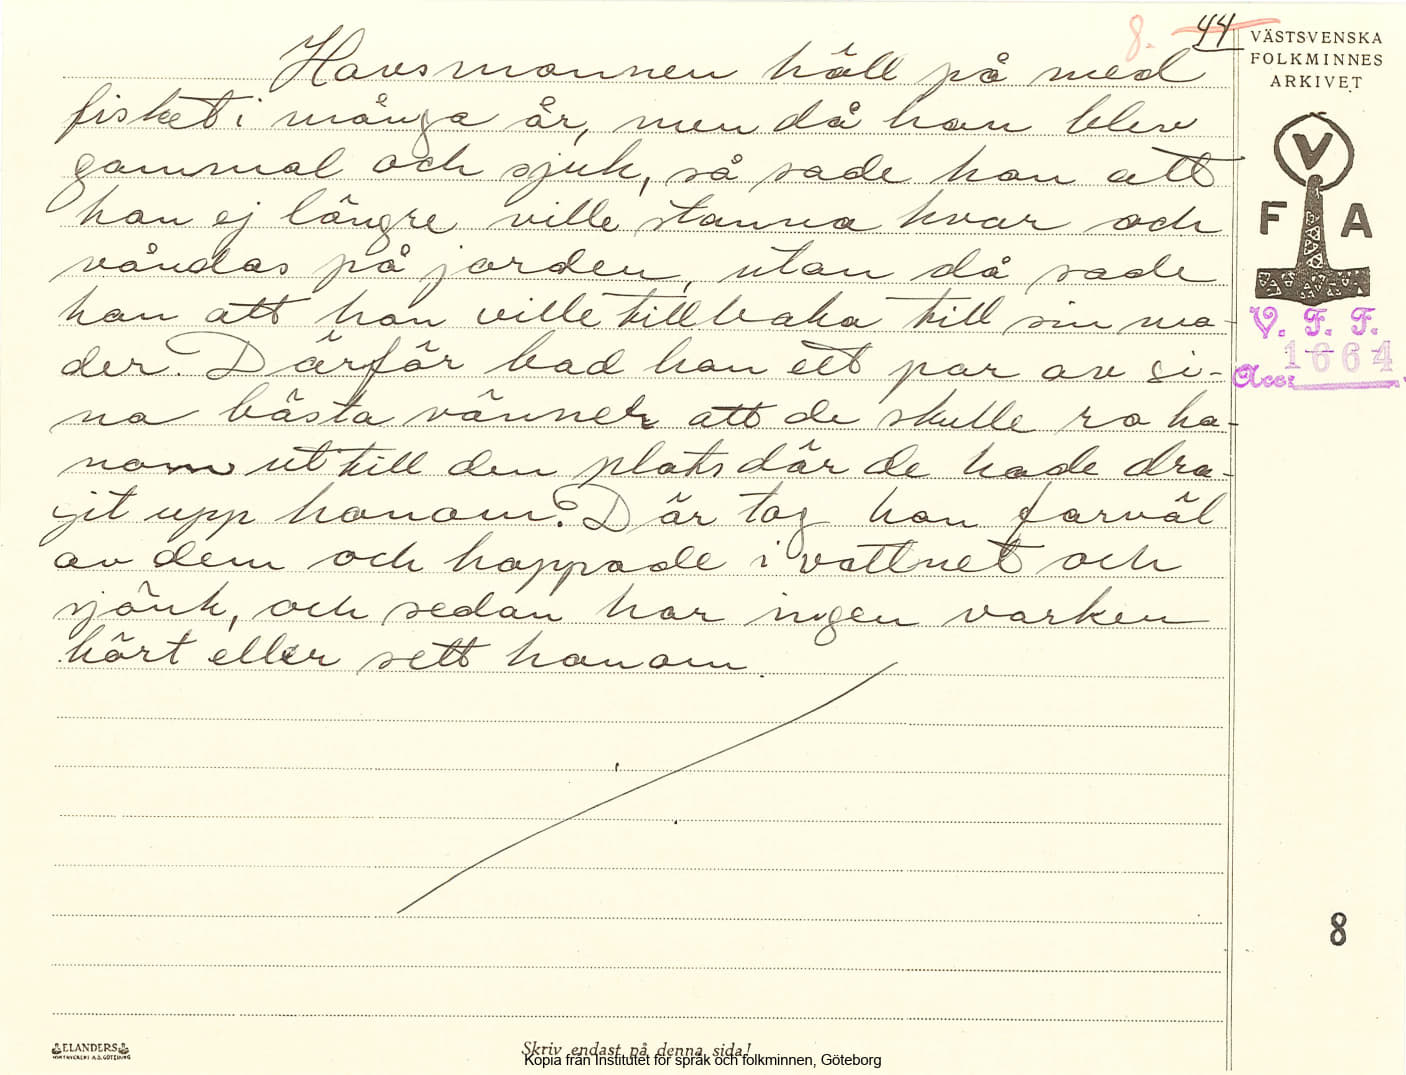 8. 44
VÄSTSVENSKA
FOLKMINNES
ARKIVET
V
F A
V. F. F.
Acc: 1664
Havsmannen höll på med
fisket i många år, men då han blev
gammal och sjuk, så sade han att
han ej längre ville stanna kvar och
våndas på jorden, utan då sade
han att han ville tillbaka till sin mo-
der. Därför bad han ett par av si-
na bästa vänner att de skulle ro ho-
nom ut till den plats där de hade dra-
git upp honom. Där tog han farväl
av dem och hoppade i vattnet och
sjönk, och sedan har ingen varken
hört eller sett honom.
8
ELANDERS
Skriv endast på denna sida!
Kopia från Institutet för språk och folkminnen, Göteborg